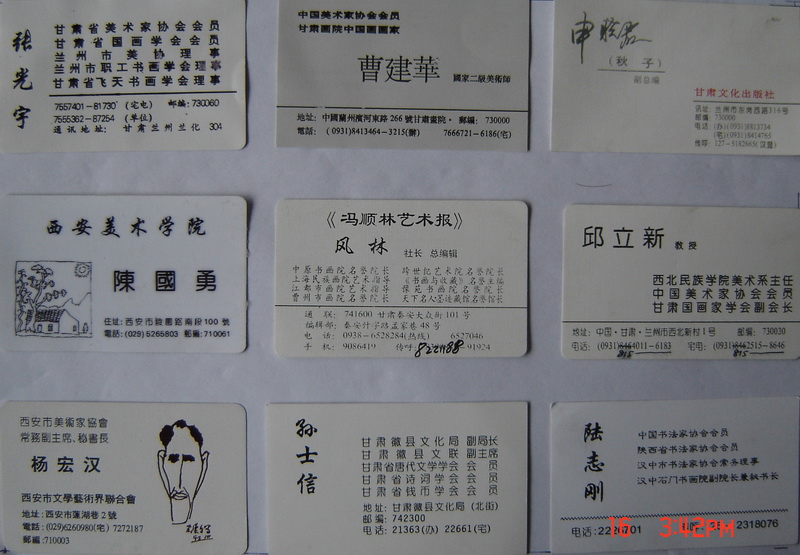 张光宇
甘肃省美术家协会会员
甘肃省国画学会会员
兰州市美协理事
兰州市职工书画学会理事
甘肃省飞天书画学会理事
7557401-81730（宅电） 邮编:730060
7555362-87254（单位）
通讯地址: 甘肃兰州兰化 304
中国美术家协会会员
甘肃画院中国画画家
曹建華 國家二級美術師
地址: 中國蘭州濱河東路 266 號甘肅畫院。郵編: 730000
電話: (0931)8413464-3215(辦) 7666721-6186(宅)
（秋 子）
副总编
甘肃文化出版社
讯址: 兰州市东南西路316号
邮编 730000
电话 (办)(0931)8813734
(宅)(0931)8414765
传呼: 127-5182665(汉显)
西安美术学院
陳國勇
電話:(029)5265803 郵編:710061
《冯顺林艺术报》
风林 社长 总编辑
中原书画院名誉院长 跨世纪艺术院名誉院长
上海民族画院艺术指导 《书画与收藏》名誉主编
江都市画院艺术指导
曹州市画院名誉院长 天下名人墨迹藏馆名誉馆长
通 联: 741600 甘肃秦安大众街 101 号
编辑部: 秦安什字路孟家巷 48 号
电 话: 0938-6528284(热线) 6527046
手 机: 9086419 传呼: 8221188 91924
邱立新 教授
西北民族学院美术系主任
中国美术家协会会员
甘肃国画家学会副会长
地址: 中国·甘肃·兰州市西北新村1号 邮编: 730030
电话: (0931)8464011-6183 宅电: (0931)8462515-8646
815 815
西安市美術家協會
常務副主席、秘書長
杨宏汉
西安市文學藝術界聯合會
地址: 西安市蓮湖巷 2 號
電話: (029)6260980(宅) 7272187
郵編:710003
孙士信
甘肃徽县文化局 副局长
甘肃徽县文联 副主席
甘肃省唐代文学学会 会员
甘肃省诗词学会 会员
甘肃省钱币学会 会员
地址: 甘肃徽县文化局（北街）
邮编: 742300
电话: 21363(办) 22661(宅)
陆志刚
中国书法家协会会员
陕西省书法家协会会员
汉中市书法家协会常务理事
汉中石门书画院副院长兼秘书长
电话: 2318076
16 3:42PM